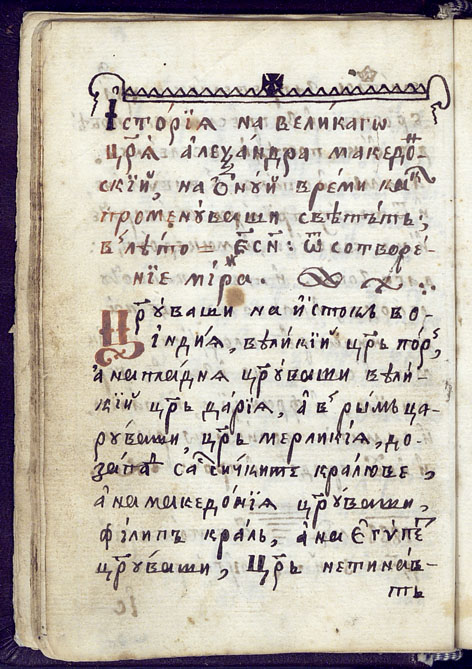 Історїя на великагѡ
цр҃ѧ алеѯандра македо́н
скїй, на ѻнуй време как
променуваши светътъ,
в лѣто = ҂ЕСН: ѿ сотворе-
нїе міра.
Цр҃уваши на истокъ во-
індия, великїй цр҃ь пор,
а на пладня цр҃уваши вели-
кїй цр҃ь да́рїя, а в рымъ ца-
руваши, цр҃ь мерликїя, до-
запад са сичките кралюве,
а на македо́нїя цр҃уваши,
филипъ краль, а на египе
цр҃уваши, Цр҃ь нетинав-
тъ